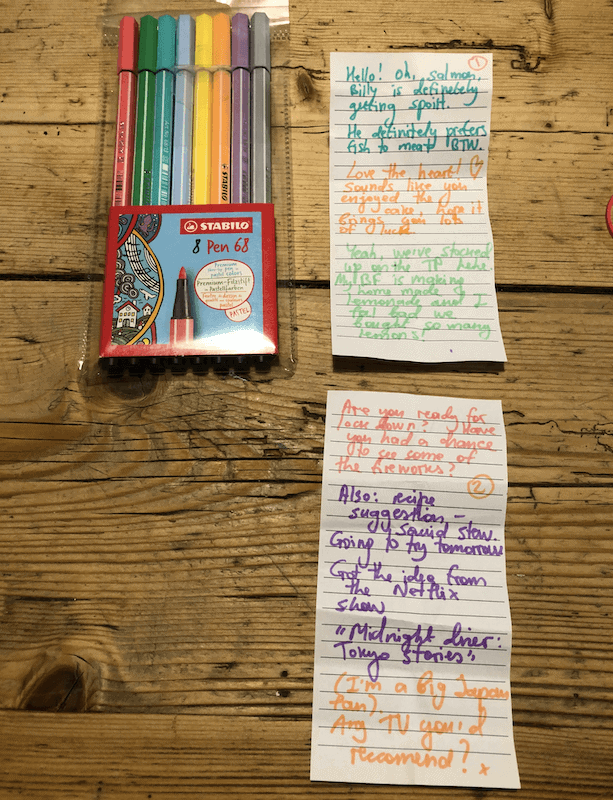 STABILO
STABILO
8 Pen 68
Premium-Filzstift
PASTEL
1
Hello! Oh, salmon,
Billy is definetely
getting spoilt.
He definitely prefers
fish to meat BTW.
Love the heart!
Sounds like you
enjoyed the
cake, hope it
brings you lots
of luck
Yeah, we've stocked
up on the TP here
My BF is making
home made
lemonade and I
feel bad we
bought so many
lemons!
Are you ready for
lock down? Have
you had a chance
to see some of
the fireworks?
2
Also: recipe
suggestion –
squid stew.
Going to try tomorrow
Got the idea from
the Netflix
show
"Midnight diner:
Tokyo Stories"
(I'm a big Japan
fan).
Any TV you'd
reccomend? x